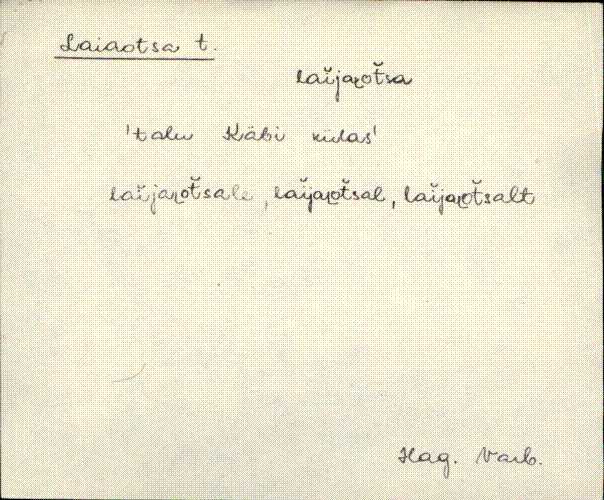 Laiaotsa t.
laĭjaοt̆sa
'talu Käbi külas'
laĭjaοt̆sale, laĭjaοt̆sal, laĭjaοt̆salt
Hag. Varb.